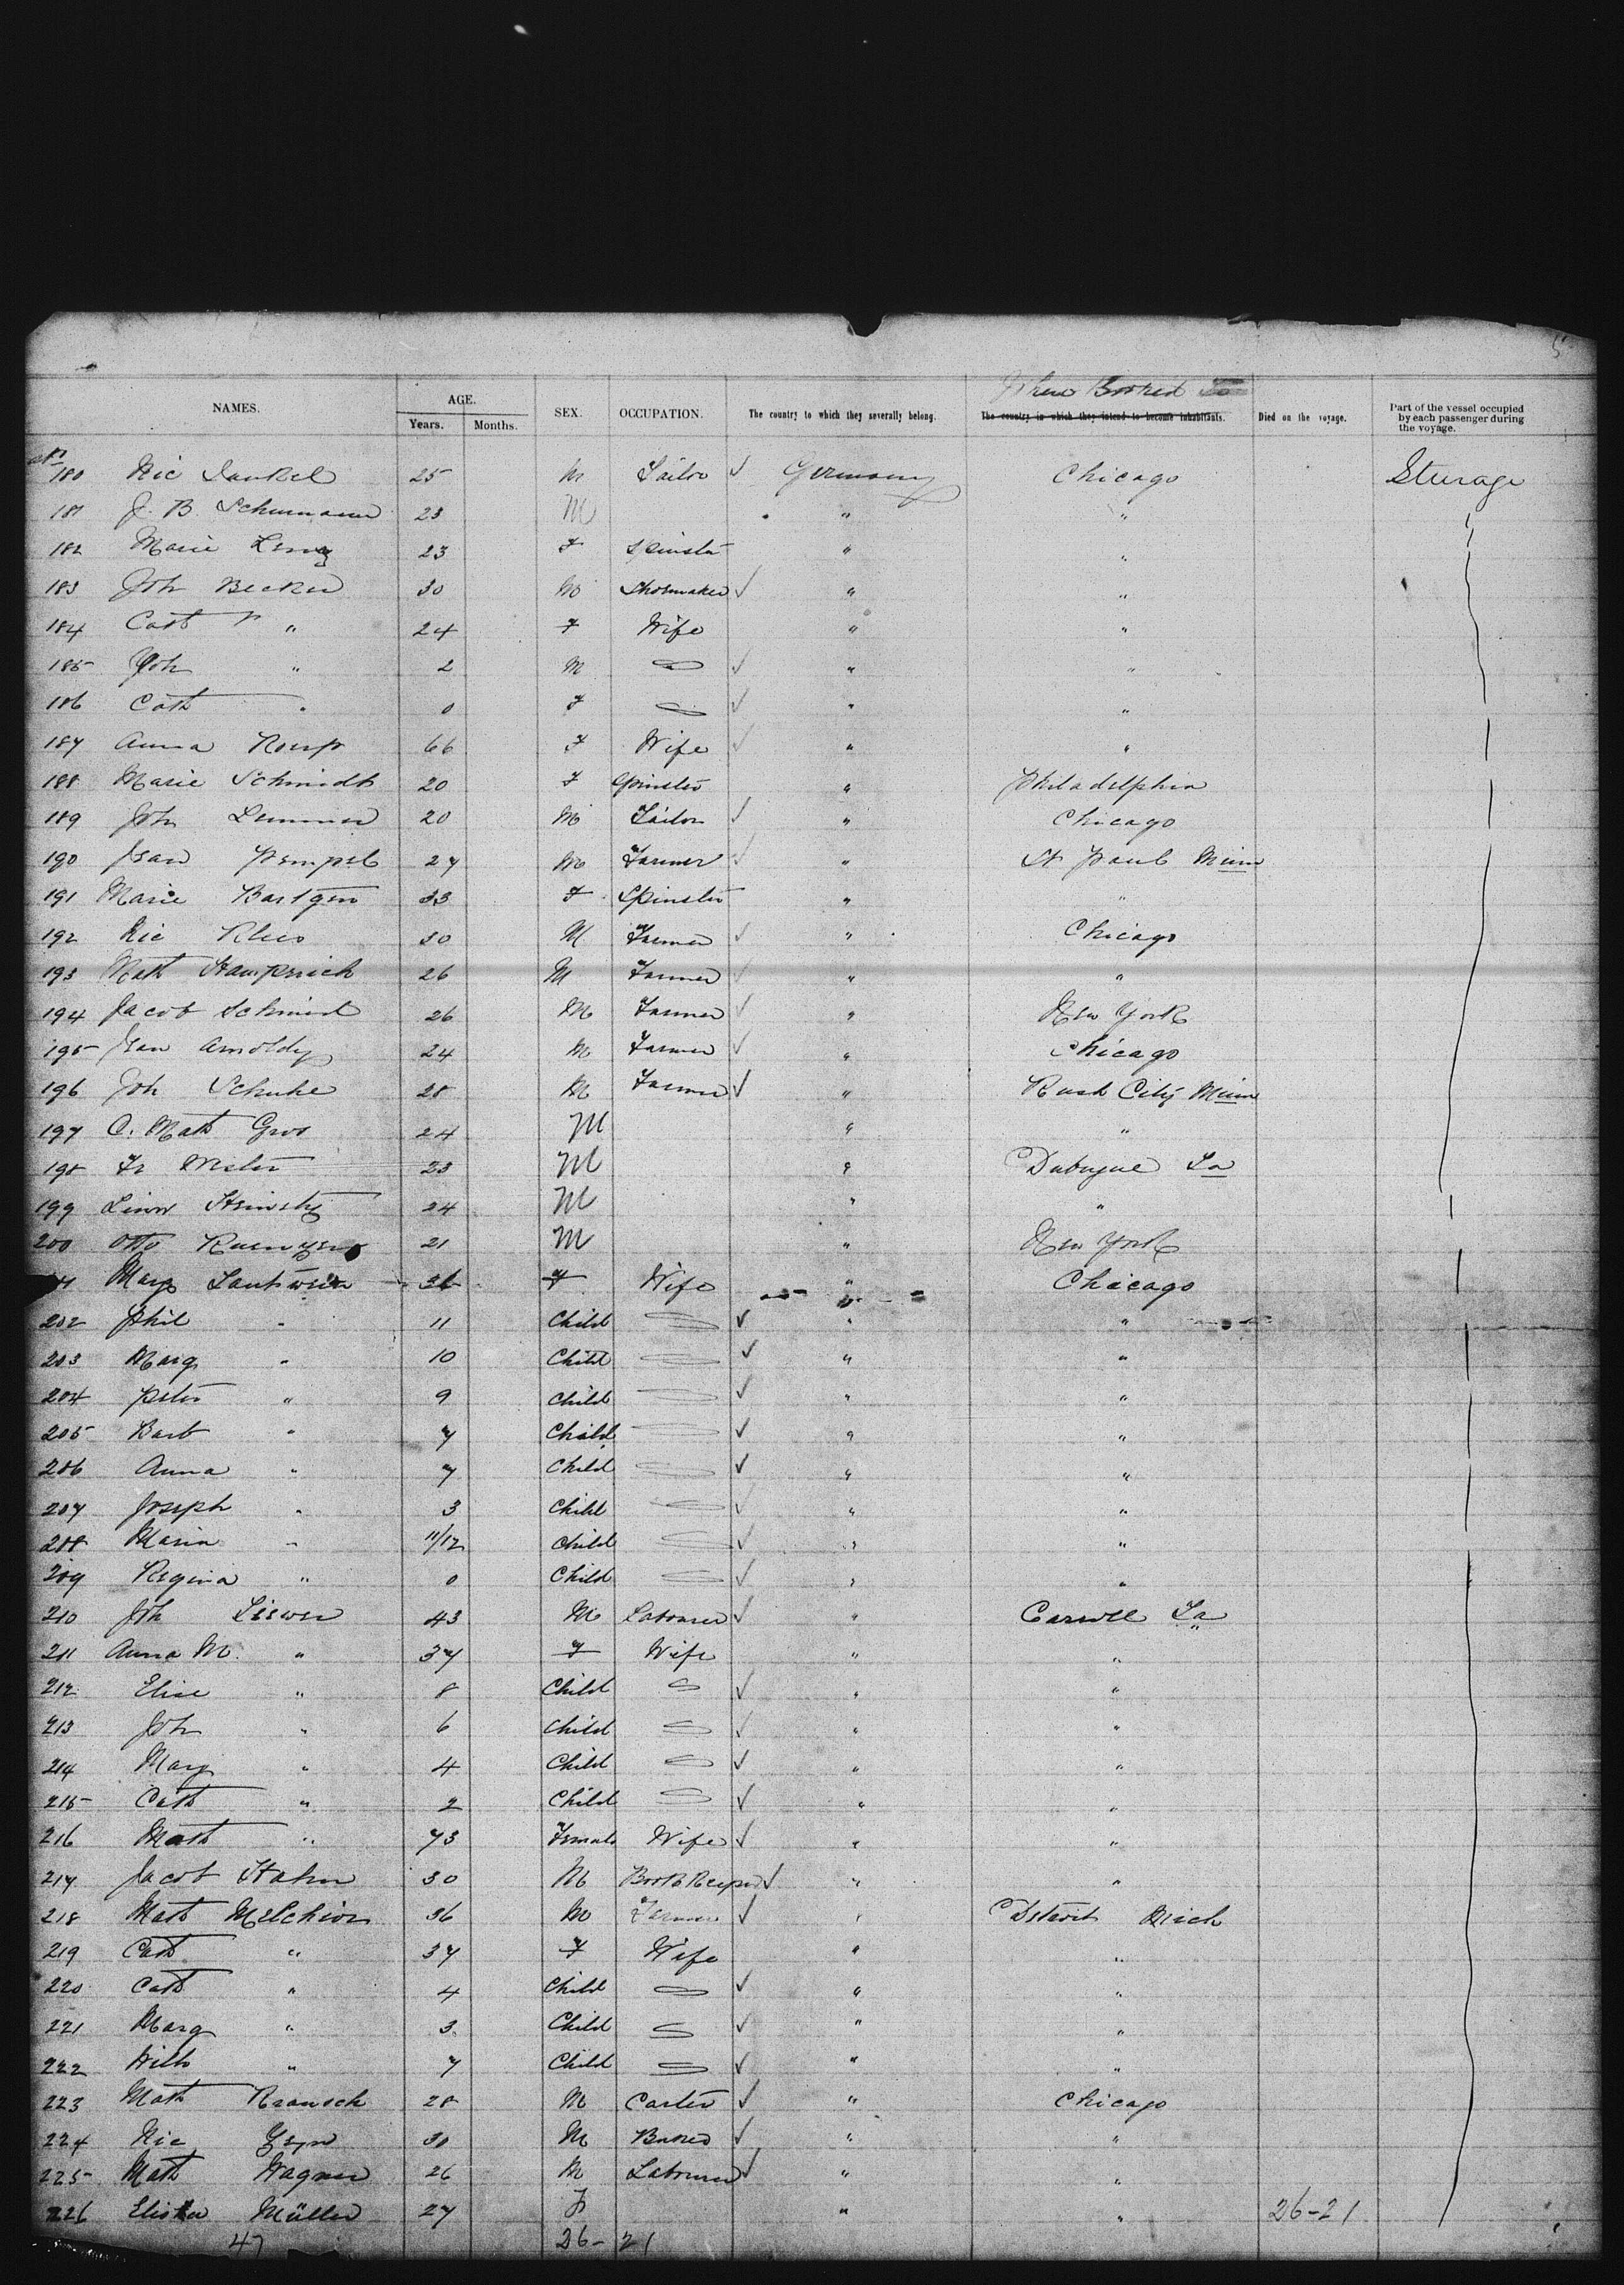 5
NAMES. AGE. Years. Months. SEX. OCCUPATION. The country to which they severally belong. Booked to The country in which they intend to become inhabitants. Died on the voyage. Part of the vessel occupied by each passenger during the voyage.
180 Nic 25 M Tailor ✓ Germany Chicago Sturage
181 J. B. Schumann 23 M " "
182 Marie 23 F Spinster " "
183 Joh Becker 30 M Shoemaker ✓ " "
184 Cath " 24 F Wife " "
185 Joh " 2 M ✓ " "
186 Cath " 0 F ✓ " "
187 Anna 66 F Wife ✓ " "
188 Marie Schmidt 20 F Spinster " Philadelphia
189 Joh Lemmer 20 M Tailor ✓ " Chicago
190 Jean 27 M Farmer ✓ " St Paul Minn
191 Marie Bartgen 33 F Spinster " "
192 Nic Klees 30 M Farmer ✓ " Chicago
193 Math 26 M Farmer ✓ " "
194 Jacob Schmid 26 M Farmer ✓ " New York
195 Jean Arnoldy 24 M Farmer ✓ " Chicago
196 Joh Schuhe 28 M Farmer ✓ " Rush City Minn
197 C. Math Gros 24 M " "
198 Fr 23 M " Dubuque Ia
199 24 M " "
200 Otto 21 M " New York
Marg 36 F Wife " Chicago
202 Phil " 11 Child ✓ " "
203 Marg " 10 Child ✓ " "
204 Peter " 9 Child ✓ " "
205 Barb " 7 Child ✓ " "
206 Anna " 7 Child ✓ " "
207 Joseph " 3 Child ✓ " "
208 Maria " 11/12 Child ✓ " "
209 Regina " 0 Child ✓ " "
210 Joh 43 M Labourer ✓ " Ia
211 Anna M. " 37 F Wife " "
212 Elise " 8 Child ✓ " "
213 Joh " 6 Child ✓ " "
214 Marg " 4 Child ✓ " "
215 Cath " 2 Child ✓ " "
216 Math " 73 Female Wife ✓ " "
217 Jacob Hahn 30 M Book Keeper ✓ " "
218 Math Melchior 36 M Farmer ✓ " Detroit Mich
219 Cath " 37 F Wife " "
220 Cath " 4 Child ✓ " "
221 Marg " 3 Child ✓ " "
222 Wilh " 7 Child ✓ " "
223 Math Krausch 28 M Carter ✓ " Chicago
224 Nic 30 M Baker ✓ " "
225 Math Wagner 26 M Labourer ✓ " "
226 Müller 27 F " " 26-21
47 26-21